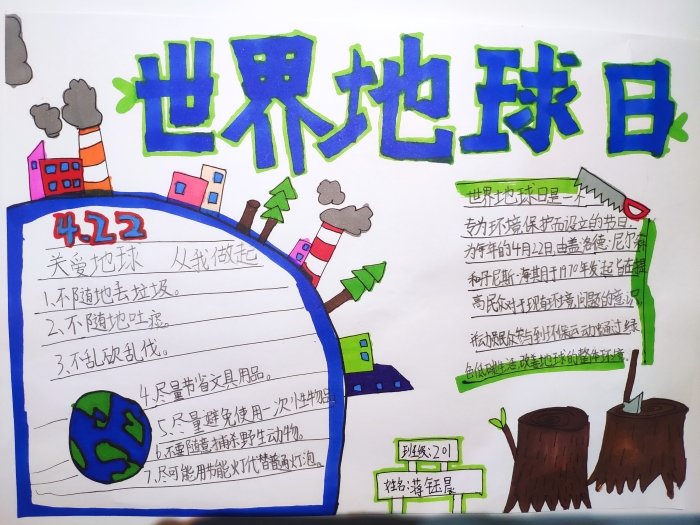 世界地球日
4.22
关爱地球 从我做起
1.不随地丢垃圾。
2.不随地吐痰。
3.不乱砍乱伐。
4.尽量节省文具用品。
5.尽量避免使用一次性物品。
6.不要随意捕杀野生动物。
7.尽可能用节能灯代替普通灯泡。
世界地球日是一个
专为环境保护而设立的节日.
为每年的4月22日.由盖洛德·尼尔森
和丹尼斯·海斯于1970年发起.旨在提
高民众对于现有环境问题的意识.
并动员民众参与到环保运动中通过绿
色低碳生活,改善地球的整体环境.
班级:201
姓名:蒋钰晨